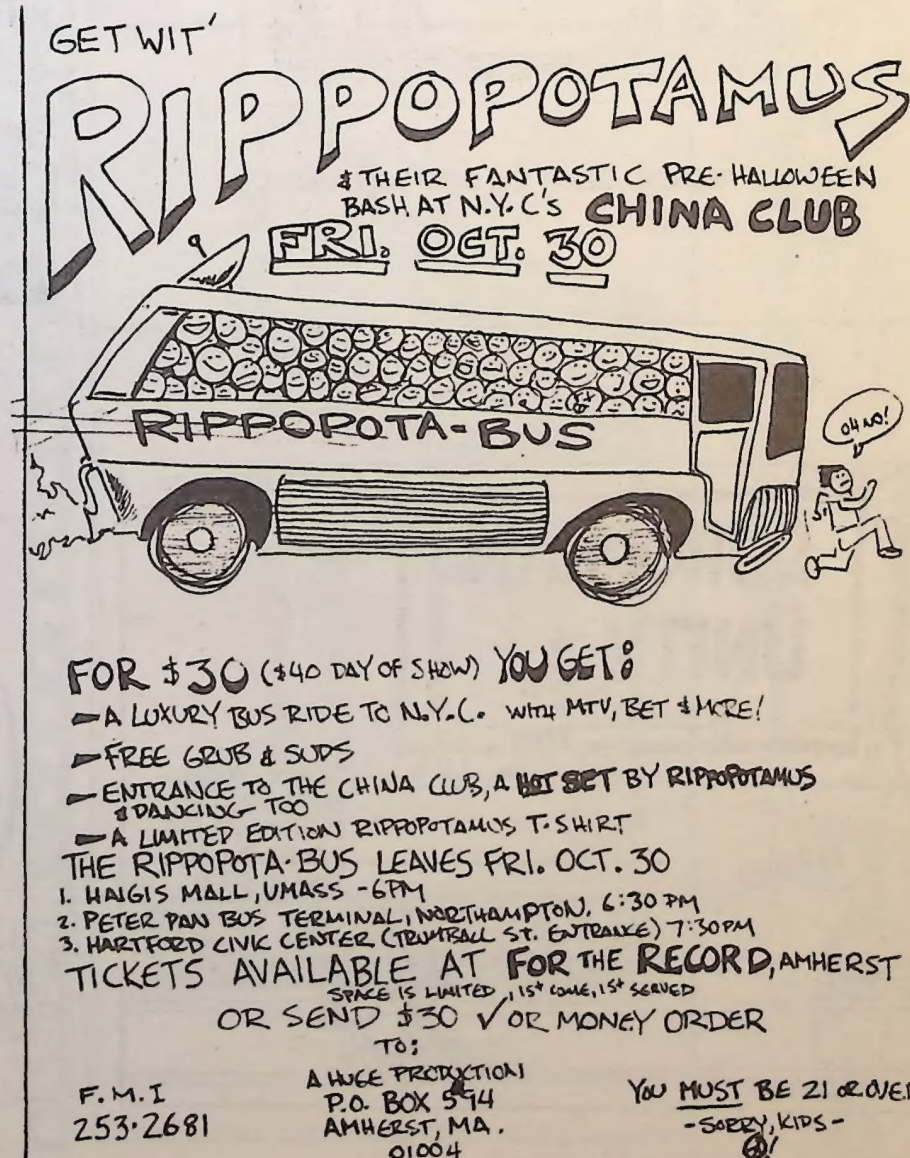 GET WIT'
RIPPOPOTAMUS
& THEIR FANTASTIC PRE-HALLOWEEN
BASH AT N.Y.C's CHINA CLUB
FRI. OCT. 30
RIPPOPOTA-BUS
OH NO!
FOR $30 ($40 DAY OF SHOW) YOU GET:
A LUXURY BUS RIDE TO N.Y.C. WITH MTV, BET & MORE!
FREE GRUB & SUDS
ENTRANCE TO THE CHINA CLUB, A HOT SET BY RIPPOPOTAMUS
& DANCING TOO
A LIMITED EDITION RIPPOPOTAMUS T-SHIRT
THE RIPPOPOTA-BUS LEAVES FRI. OCT. 30
1. HAIGIS MALL, UMASS - 6PM
2. PETER PAN BUS TERMINAL, NORTHAMPTON, 6:30 PM
3. HARTFORD CIVIC CENTER (TRUMBALL ST. ENTRANCE) 7:30PM
TICKETS AVAILABLE AT FOR THE RECORD, AMHERST
SPACE IS LIMITED, 1st COME, 1st SERVED
OR SEND $30 ✓ OR MONEY ORDER
TO:
A HUGE PRODUCTION
P.O. BOX 594
AMHERST, MA.
01004
F.M.I
253-2681
YOU MUST BE 21 OR OVER
- SORRY, KIDS -